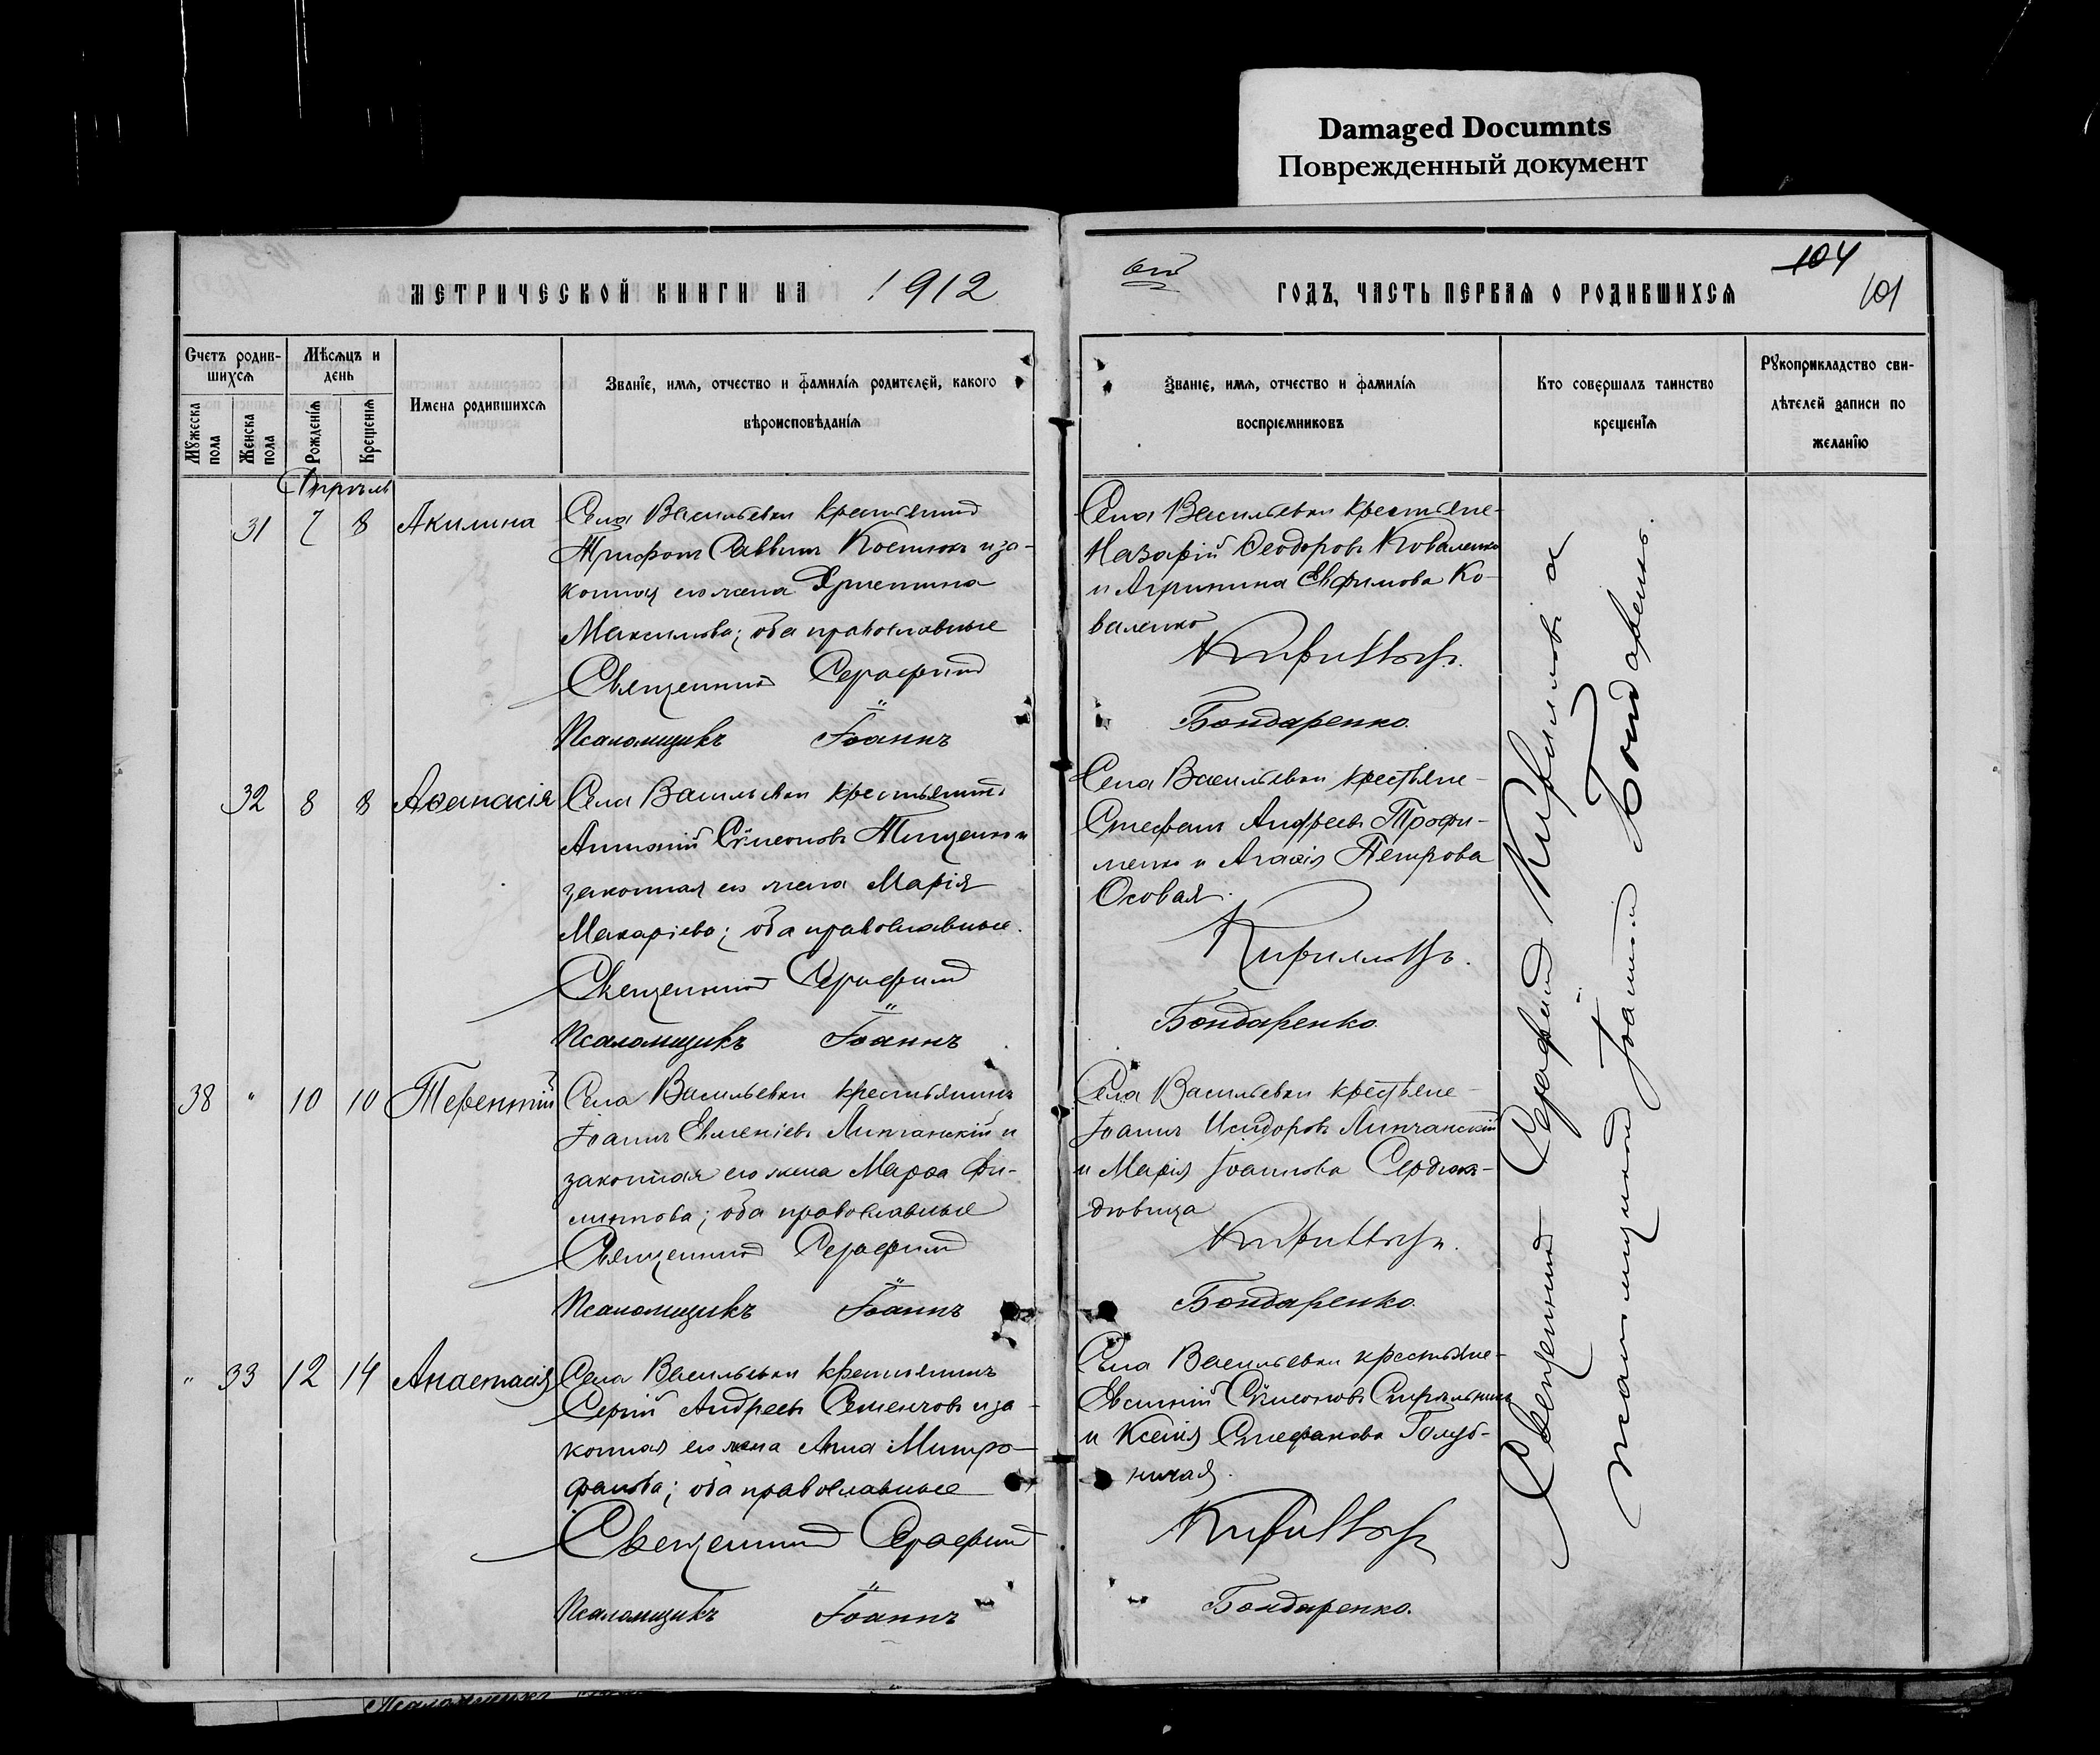 Damaged Documnts
Поврежденный документ
МЕТРИЧЕСКОЙ КНИГИ НА 1912
ГОДЪ, ЧАСТЬ ПЕРВАЯ О РОДИВШИХСЯ
104
101
Счетъ родив-
шихся
Мужеска пола
Женска пола
Мѣсяцъ и
день
Рожденія
Крещенія
Имена родившихся
Званіе, имя, отчество и фамилія родителей, какого
вѣроисповѣданія
Званіе, имя, отчество и фамилія
воспріемниковъ
Кто совершалъ таинство
крещенія
Рукоприкладство сви-
дѣтелей записи по
желанію
Апрѣль
31 7 8 Акилина
Села Васильевки крестьянинъ
Трифонъ Саввинъ Костюкъ и за-
конная его жена Христина
Максимова; оба православные
Священникъ Серафимъ
Псаломщикъ Іоаннъ
Села Васильевки крестьяне-
Назарій Ѳеодоровъ Коваленко
и Агрипина Евфимова Ко-
валенко
Кирилловъ.
Бондаренко.
32 8 8 Аѳанасія
Села Васильевки крестьянинъ
Симеоновъ Тищенко и
законная его жена Марія
Макаріева; оба православные.
Священникъ Серафимъ
Псаломщикъ Іоаннъ
Села Васильевки крестьяне-
Стефанъ Андреевъ Трофи-
менко и Агаѳія Петрова
Осовая.
Кирилловъ.
Бондаренко.
38 " 10 10 Терентій
Села Васильевки крестьянинъ
Іоаннъ Евменіевъ Липчанскій и
законная его жена Марѳа Фи-
липпова; оба православные
Священникъ Серафимъ
Псаломщикъ Іоаннъ
Села Васильевки крестьяне-
Іоаннъ Исидоровъ Липчанскій
и Марія Іоаннова Сердюкъ-
дѣвица
Кирилловъ.
Бондаренко.
" 33 12 14 Анастасія
Села Васильевки крестьянинъ
Сергій Андреевъ Семенчовъ и за-
конная его жена Анна Митро-
фанова; оба православные
Священникъ Серафимъ
Псаломщикъ Іоаннъ
Села Васильевки крестьяне-
Симеоновъ
и Ксенія Стефанова Голуб-
ничая.
Кирилловъ
Бондаренко.
Священникъ Серафимъ Кирилловъ съ
псаломщикомъ Іоанномъ Бондаренко.